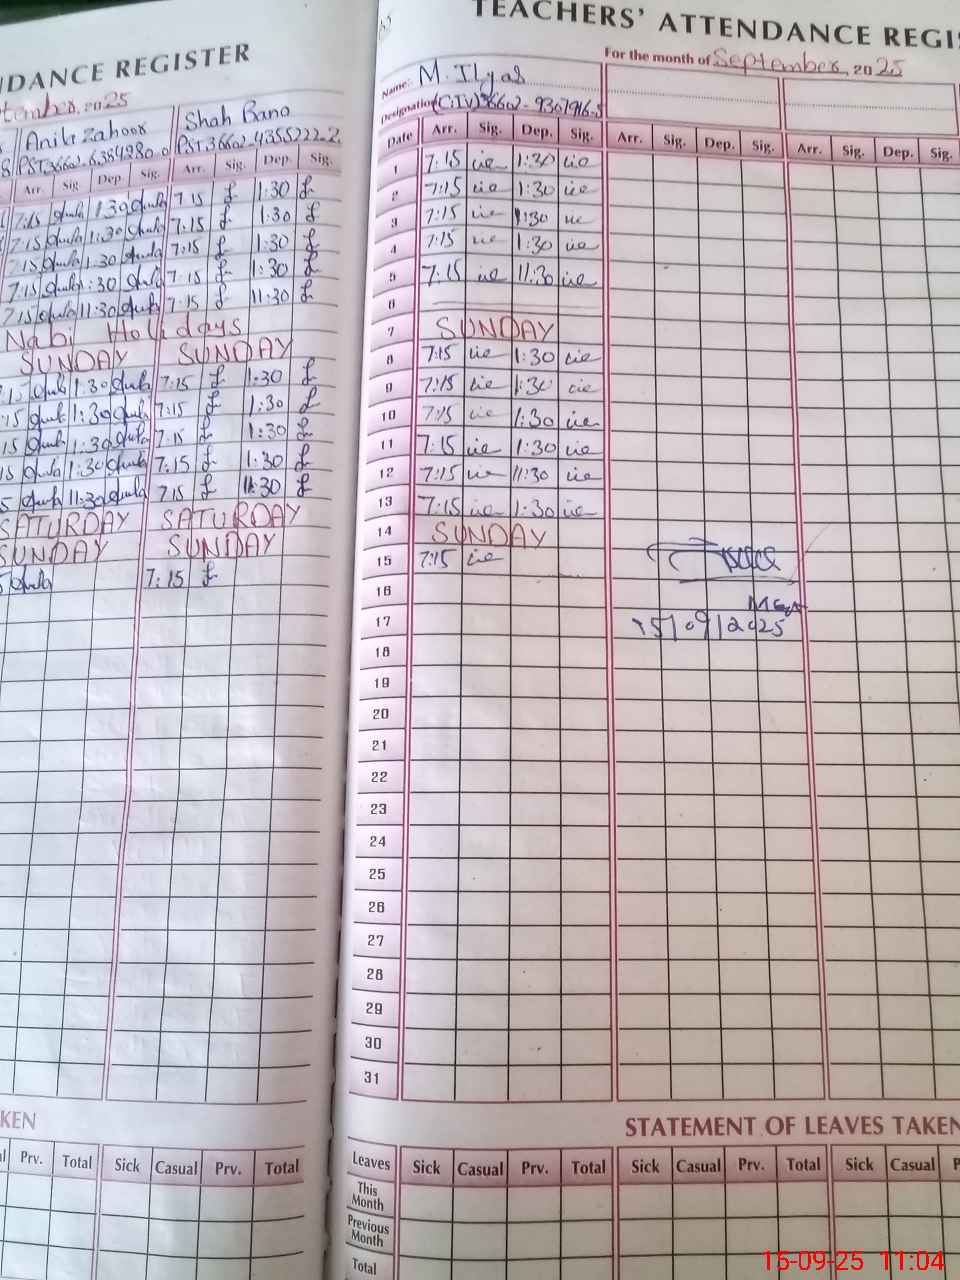 NDANCE REGISTER
tember, 2025
Anila Zahoor Shah Bano
PST.36602.6384980.0 PST.36602.4355222.2
Arr. Sig. Dep. Sig. Arr. Sig. Dep. Sig.
7:15 1:30 7:15 1:30
7:15 1:30 7:15 1:30
7:15 1:30 7:15 1:30
7:15 1:30 7:15 1:30
7:15 11:30 7:15 11:30
Nabi Holidays
SUNDAY SUNDAY
7:15 1:30 7:15 1:30
:15 1:30 7:15 1:30
15 1:30 7:15 1:30
15 1:30 7:15 1:30
5 11:30 7:15 11:30
SATURDAY SATURDAY
SUNDAY SUNDAY
5 7:15
KEN
Prv. Total Sick Casual Prv. Total
TEACHERS' ATTENDANCE REGIS
For the month of September, 2025
Name: M. Ilyas
Designation (C.IV) 36602-9307916.5
Date Arr. Sig. Dep. Sig. Arr. Sig. Dep. Sig. Arr. Sig. Dep. Sig.
1 7:15 1:30
2 7:15 1:30
3 7:15 1:30
4 7:15 1:30
5 7:15 11:30
6
7 SUNDAY
8 7:15 1:30
9 7:15 1:30
10 7:15 1:30
11 7:15 1:30
12 7:15 11:30
13 7:15 1:30
14 SUNDAY
15 7:15
16
17 15/09/2025
18
19
20
21
22
23
24
25
26
27
28
29
30
31
STATEMENT OF LEAVES TAKEN
Leaves Sick Casual Prv. Total Sick Casual Prv. Total Sick Casual P
This Month
Previous Month
Total
15-09-25 11:04